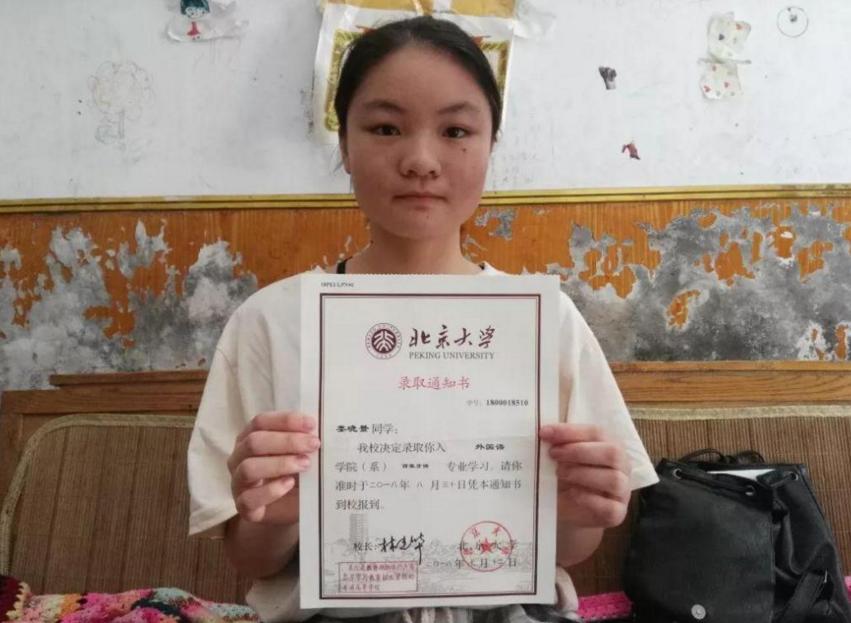 北京大学
PEKING UNIVERSITY
录取通知书
学号：1800018510
李晓景同学：
我校决定录取你入 外国语
学院（系） 西班牙语 专业学习。请你
准时于二〇一八年 八 月 三十 日凭本通知书
到校报到。
校长：林建华
北京大学
二〇一八年 月 十二 日